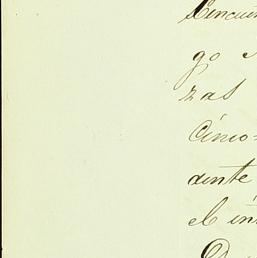 Cincuen
go
zas
Cinco=
dente
el in